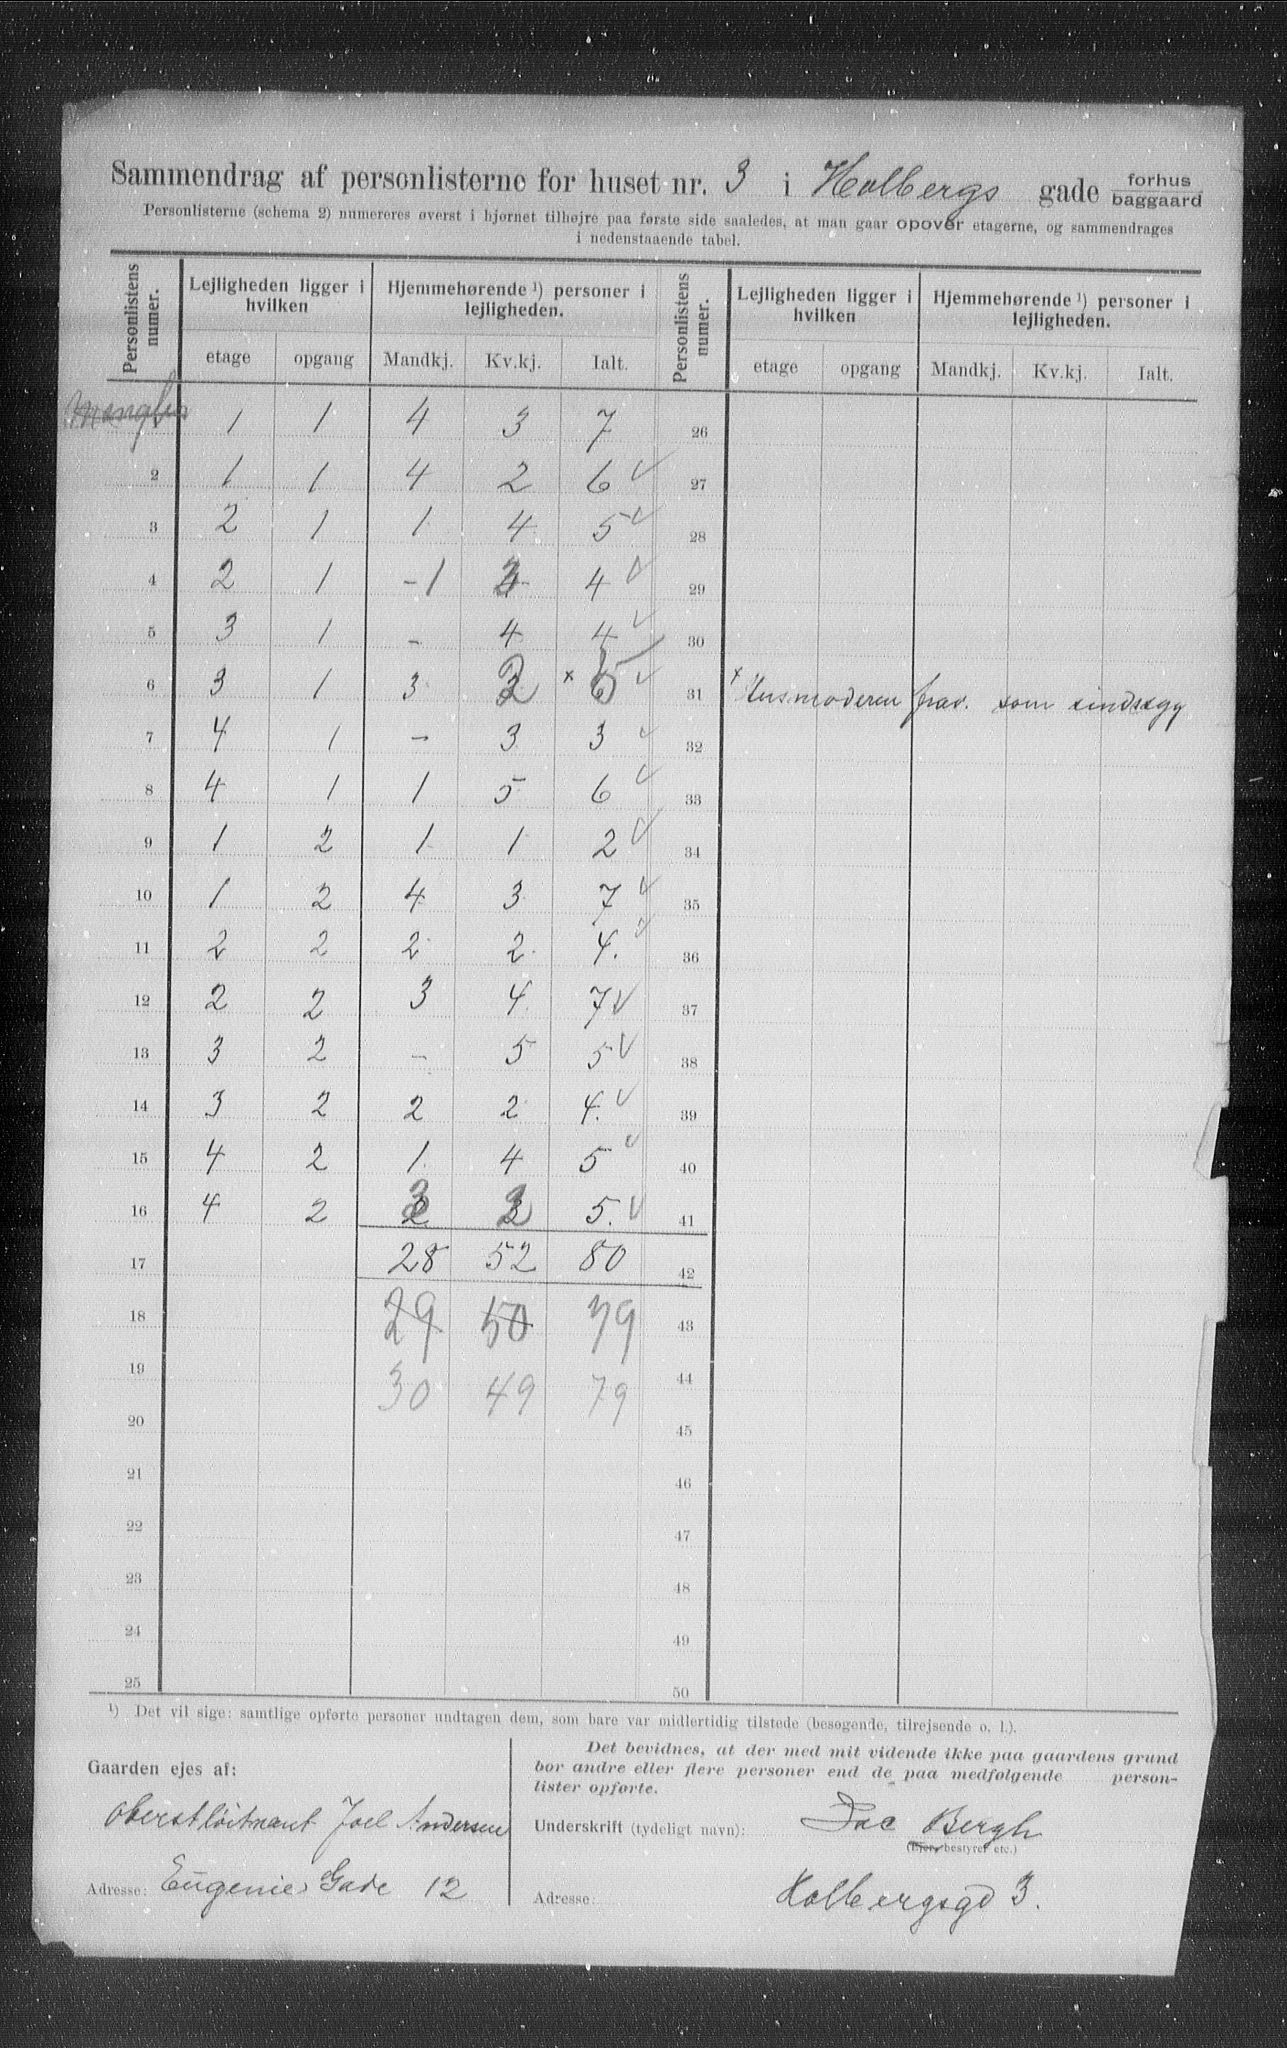 Sammendrag af personlisterne for huset nr. 3 i Holbergs gade forhus baggaard
Personlisterne (schema 2) numereres øverst i hjørnet tilhøjre paa første side saaledes, at man gaar opover etagerne, og sammendrages
i nedenstaaende tabel.
Personlistens numer. Lejligheden ligger i hvilken Hjemmehørende ¹) personer i lejligheden. Personlistens numer. Lejligheden ligger i hvilken Hjemmehørende ¹) personer i lejligheden.
etage opgang Mandkj. Kv.kj. Ialt. etage opgang Mandkj. Kv.kj. Ialt.
1 1 1 4 3 7 26
2 1 1 4 2 6 ✓ 27
3 2 1 1 4 5 ✓ 28
4 2 1 - 1 3 4 ✓ 29
5 3 1 - 4 4 ✓ 30
6 3 1 3 2 × 5 ✓ 31 × Husmoderen frav. som sindssyg
7 4 1 - 3 3 ✓ 32
8 4 1 1 5 6 ✓ 33
9 1 2 1 1 2 ✓ 34
10 1 2 4 3 7 ✓ 35
11 2 2 2 2 4. ✓ 36
12 2 2 3 4 7 ✓ 37
13 3 2 - 5 5 ✓ 38
14 3 2 2 2 4. ✓ 39
15 4 2 1 4 5 ✓ 40
16 4 2 3 2 5. ✓ 41
17 28 52 80 42
18 29 50 79 43
19 30 49 79 44
20 45
21 46
22 47
23 48
24 49
25 50
¹) Det vil sige: samtlige opførte personer undtagen dem, som bare var midlertidig tilstede (besøgende, tilrejsende o. l.).
Gaarden ejes af:
Oberstløitnant Joel Andersen
Adresse: Eugenies Gade 12
Det bevidnes, at der med mit vidende ikke paa gaardens grund
bor andre eller flere personer end de paa medfølgende person-
lister opførte.
Underskrift (tydeligt navn): Jac Bergh
(Ejer, bestyrer etc.)
Adresse: Holbergsgd 3.